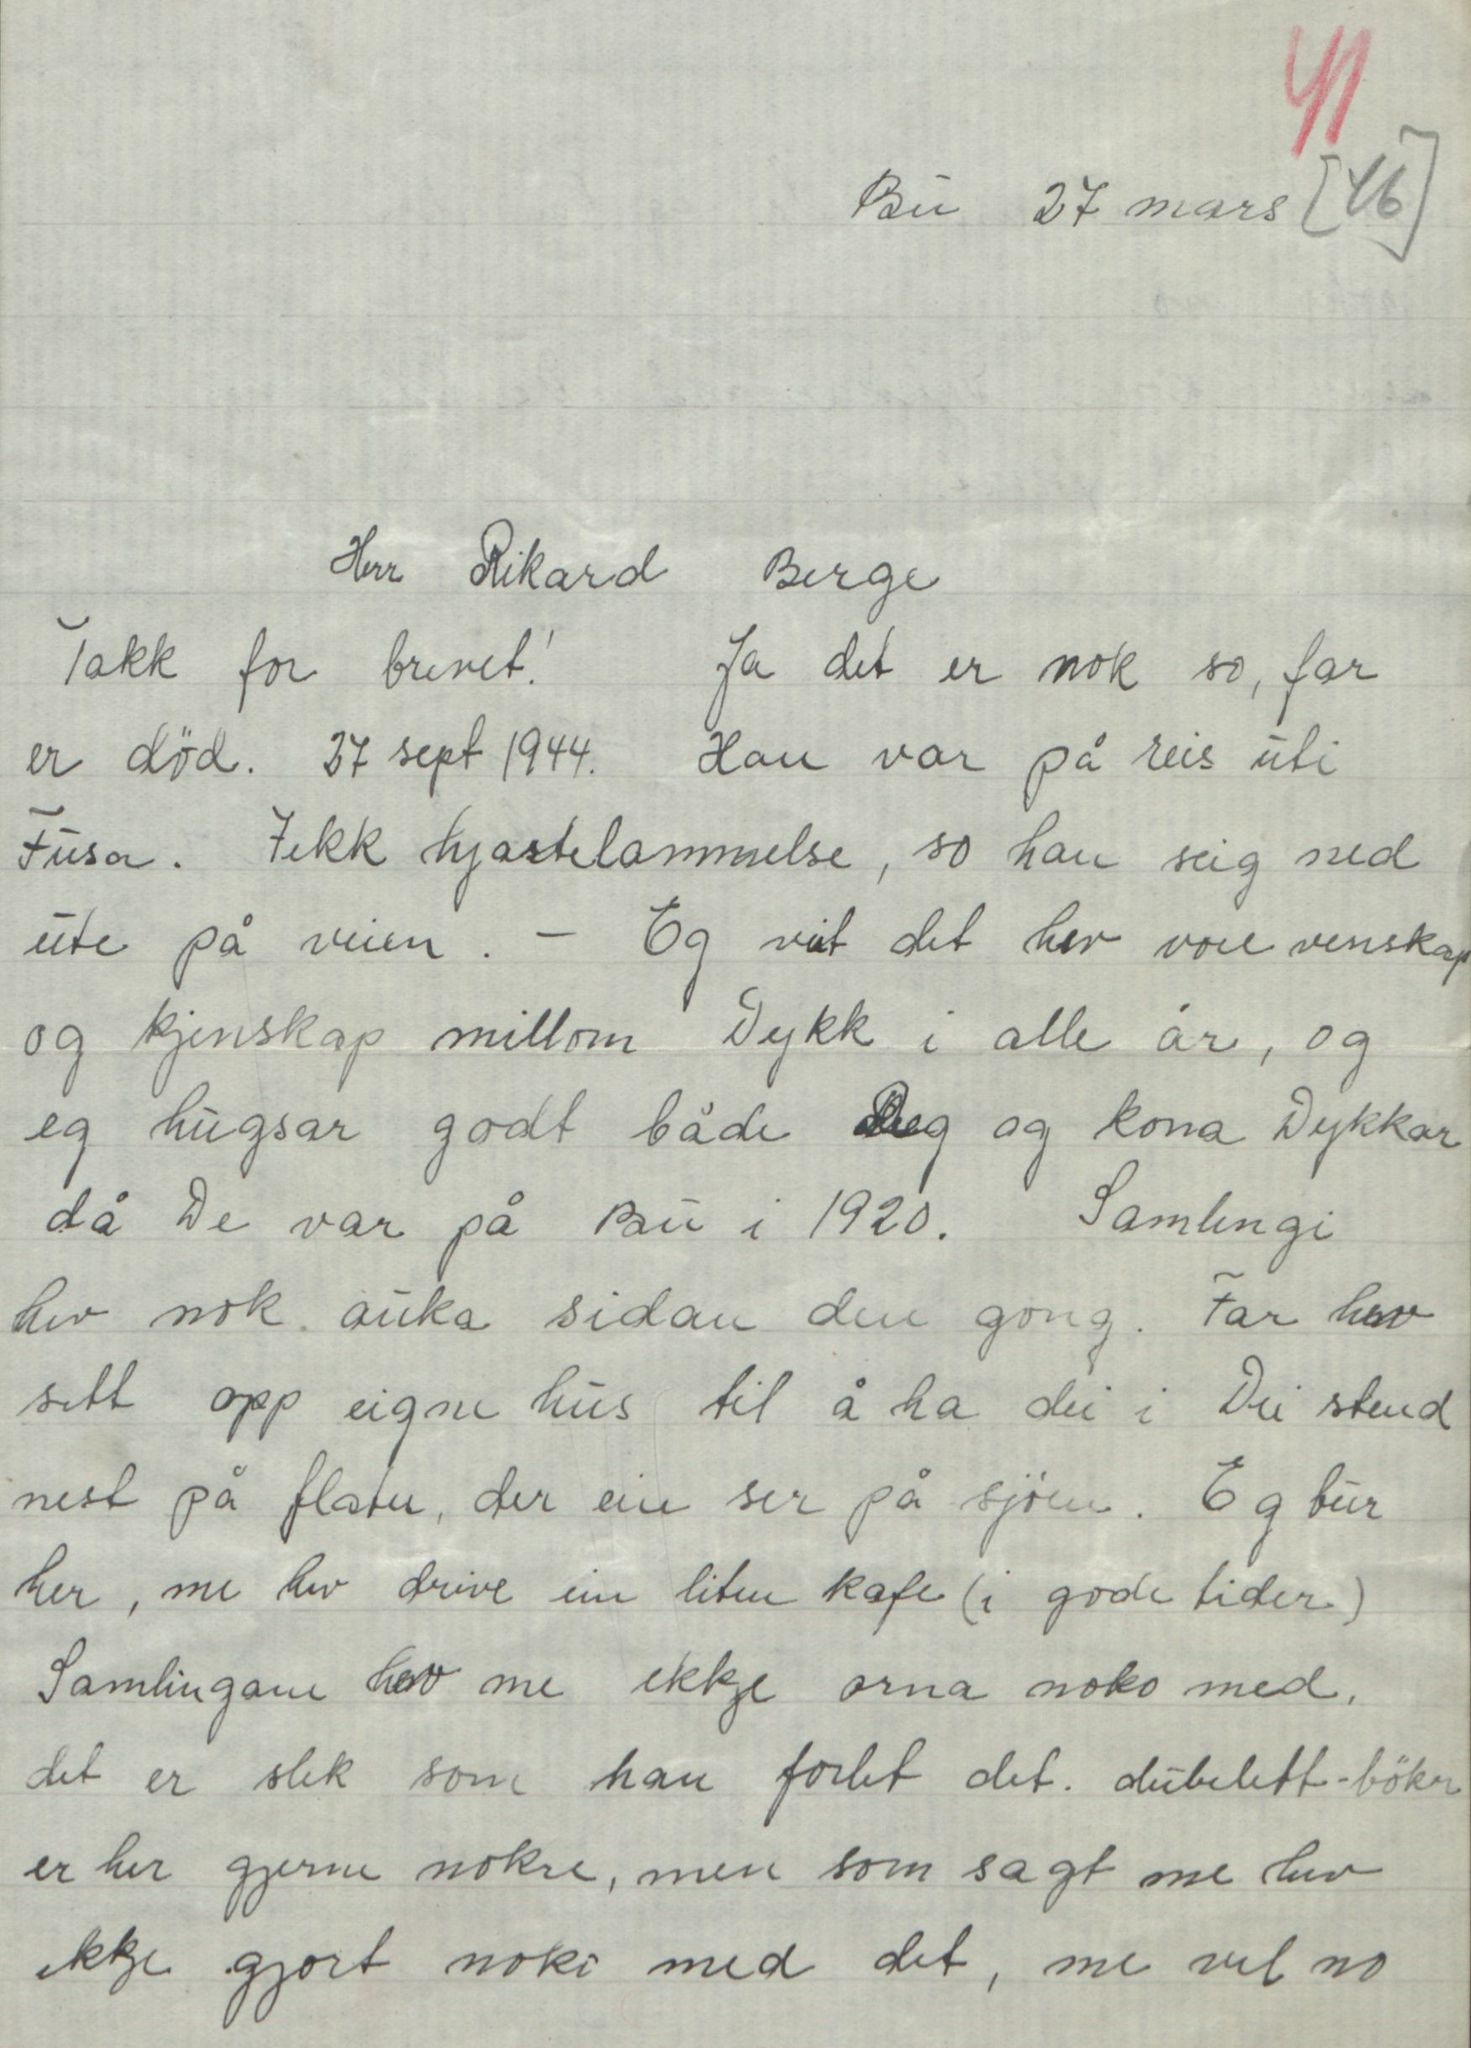 41
Bu 27 mars [46]
Herr Rikard Berge
Takk for brevet! Ja det er nok so, far
er död. 27 sept 1944. Han var på reis uti
Fusa. Fekk hjartelammelse, so han seig ned
ute på veien. - Eg veit det hev vore venskap
og kjenskap millom Dykk i alle år, og
eg hugsar godt både Deg og kona Dykkar
då De var på Bu i 1920. Samlingi
hev nok auka sidan den gong. Far hev
sett opp eigne hus til å ha dei i Dei stend
nest på flaten, der ein ser på sjöen. Eg bur
her, me hev drive ein liten kafe (i gode tider)
Samlingane hev me ikkje orna noko med,
det er slik som han forlet det. dubelett-böker
er her gjerne nokre, men som sagt me hev
ikkje gjort noko med det, me vil no